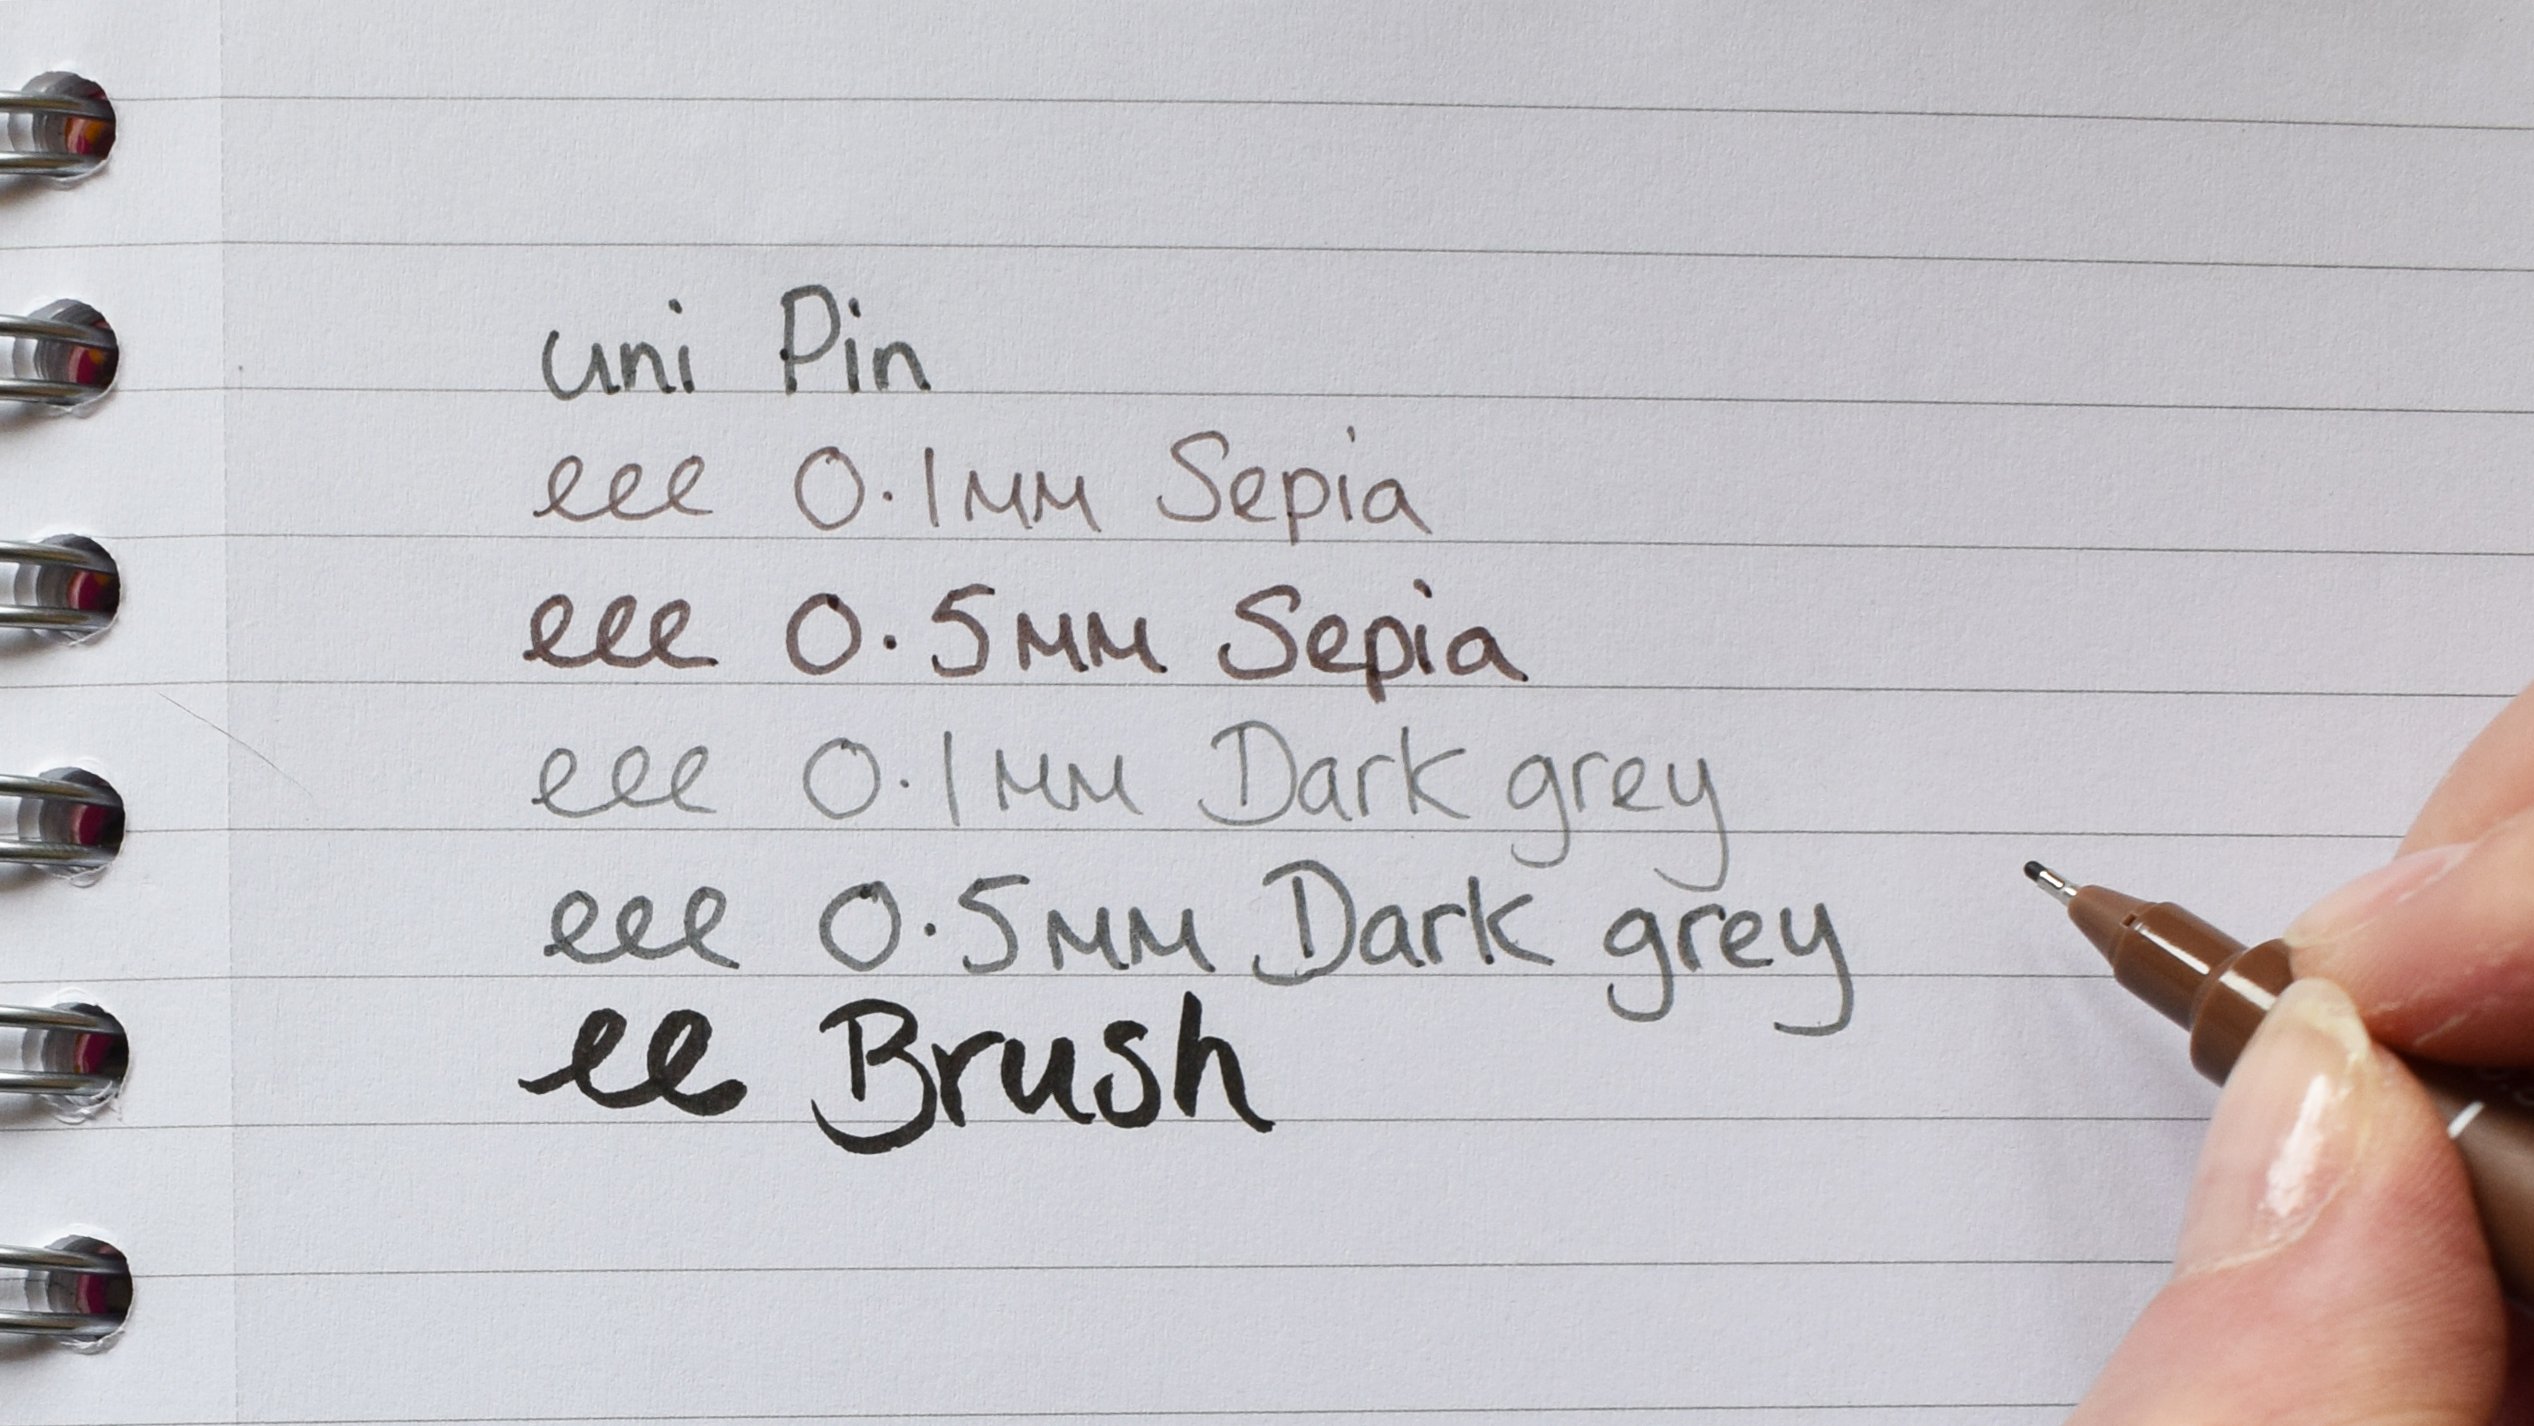 uni Pin
eee 0.1mm Sepia
eee 0.5mm Sepia
eee 0.1mm Dark grey
eee 0.5mm Dark grey
ee Brush